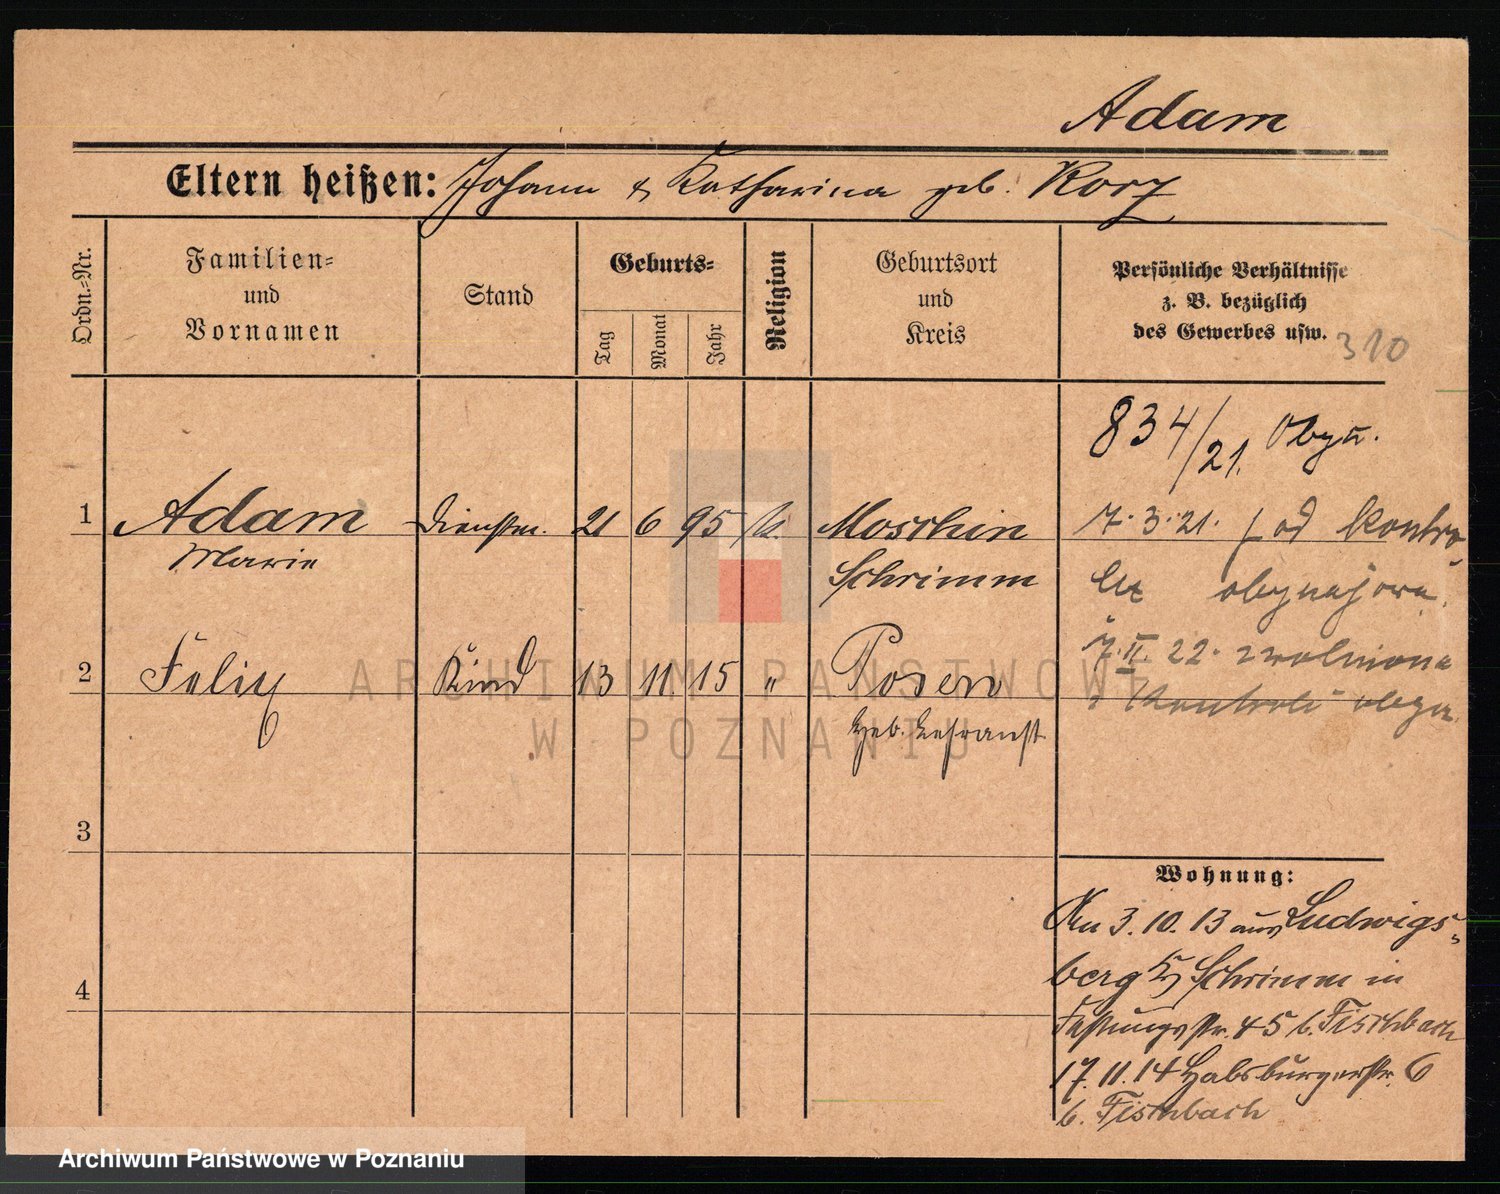 Adam
Eltern heißen: Johann & Katharina geb. Korz
Ordn.-Nr.
Familien-
und
Vornamen
Stand
Geburts-
Tag
Monat
Jahr
Religion
Geburtsort
und
Kreis
Persönliche Verhältnisse
z. B. bezüglich
des Gewerbes usw.
310
834/21.
1 Adam Dienstm. 21 6 95 k. Moschin
Marie Schrimm
7.3.21. od kontro
2 Felix Kind 13 11. 15 " Posen
7.II.22. zwolniona
kontroli
3
4
Wohnung:
Am 3.10.13 aus Ludwigs-
berg Kr Schrimm in
Festungsstr. 45 b. Fischbach
17.11.14 Habsburgerstr. 6
b. Fischbach
ARCHIWUM PAŃSTWOWE
W POZNANIU
Archiwum Państwowe w Poznaniu